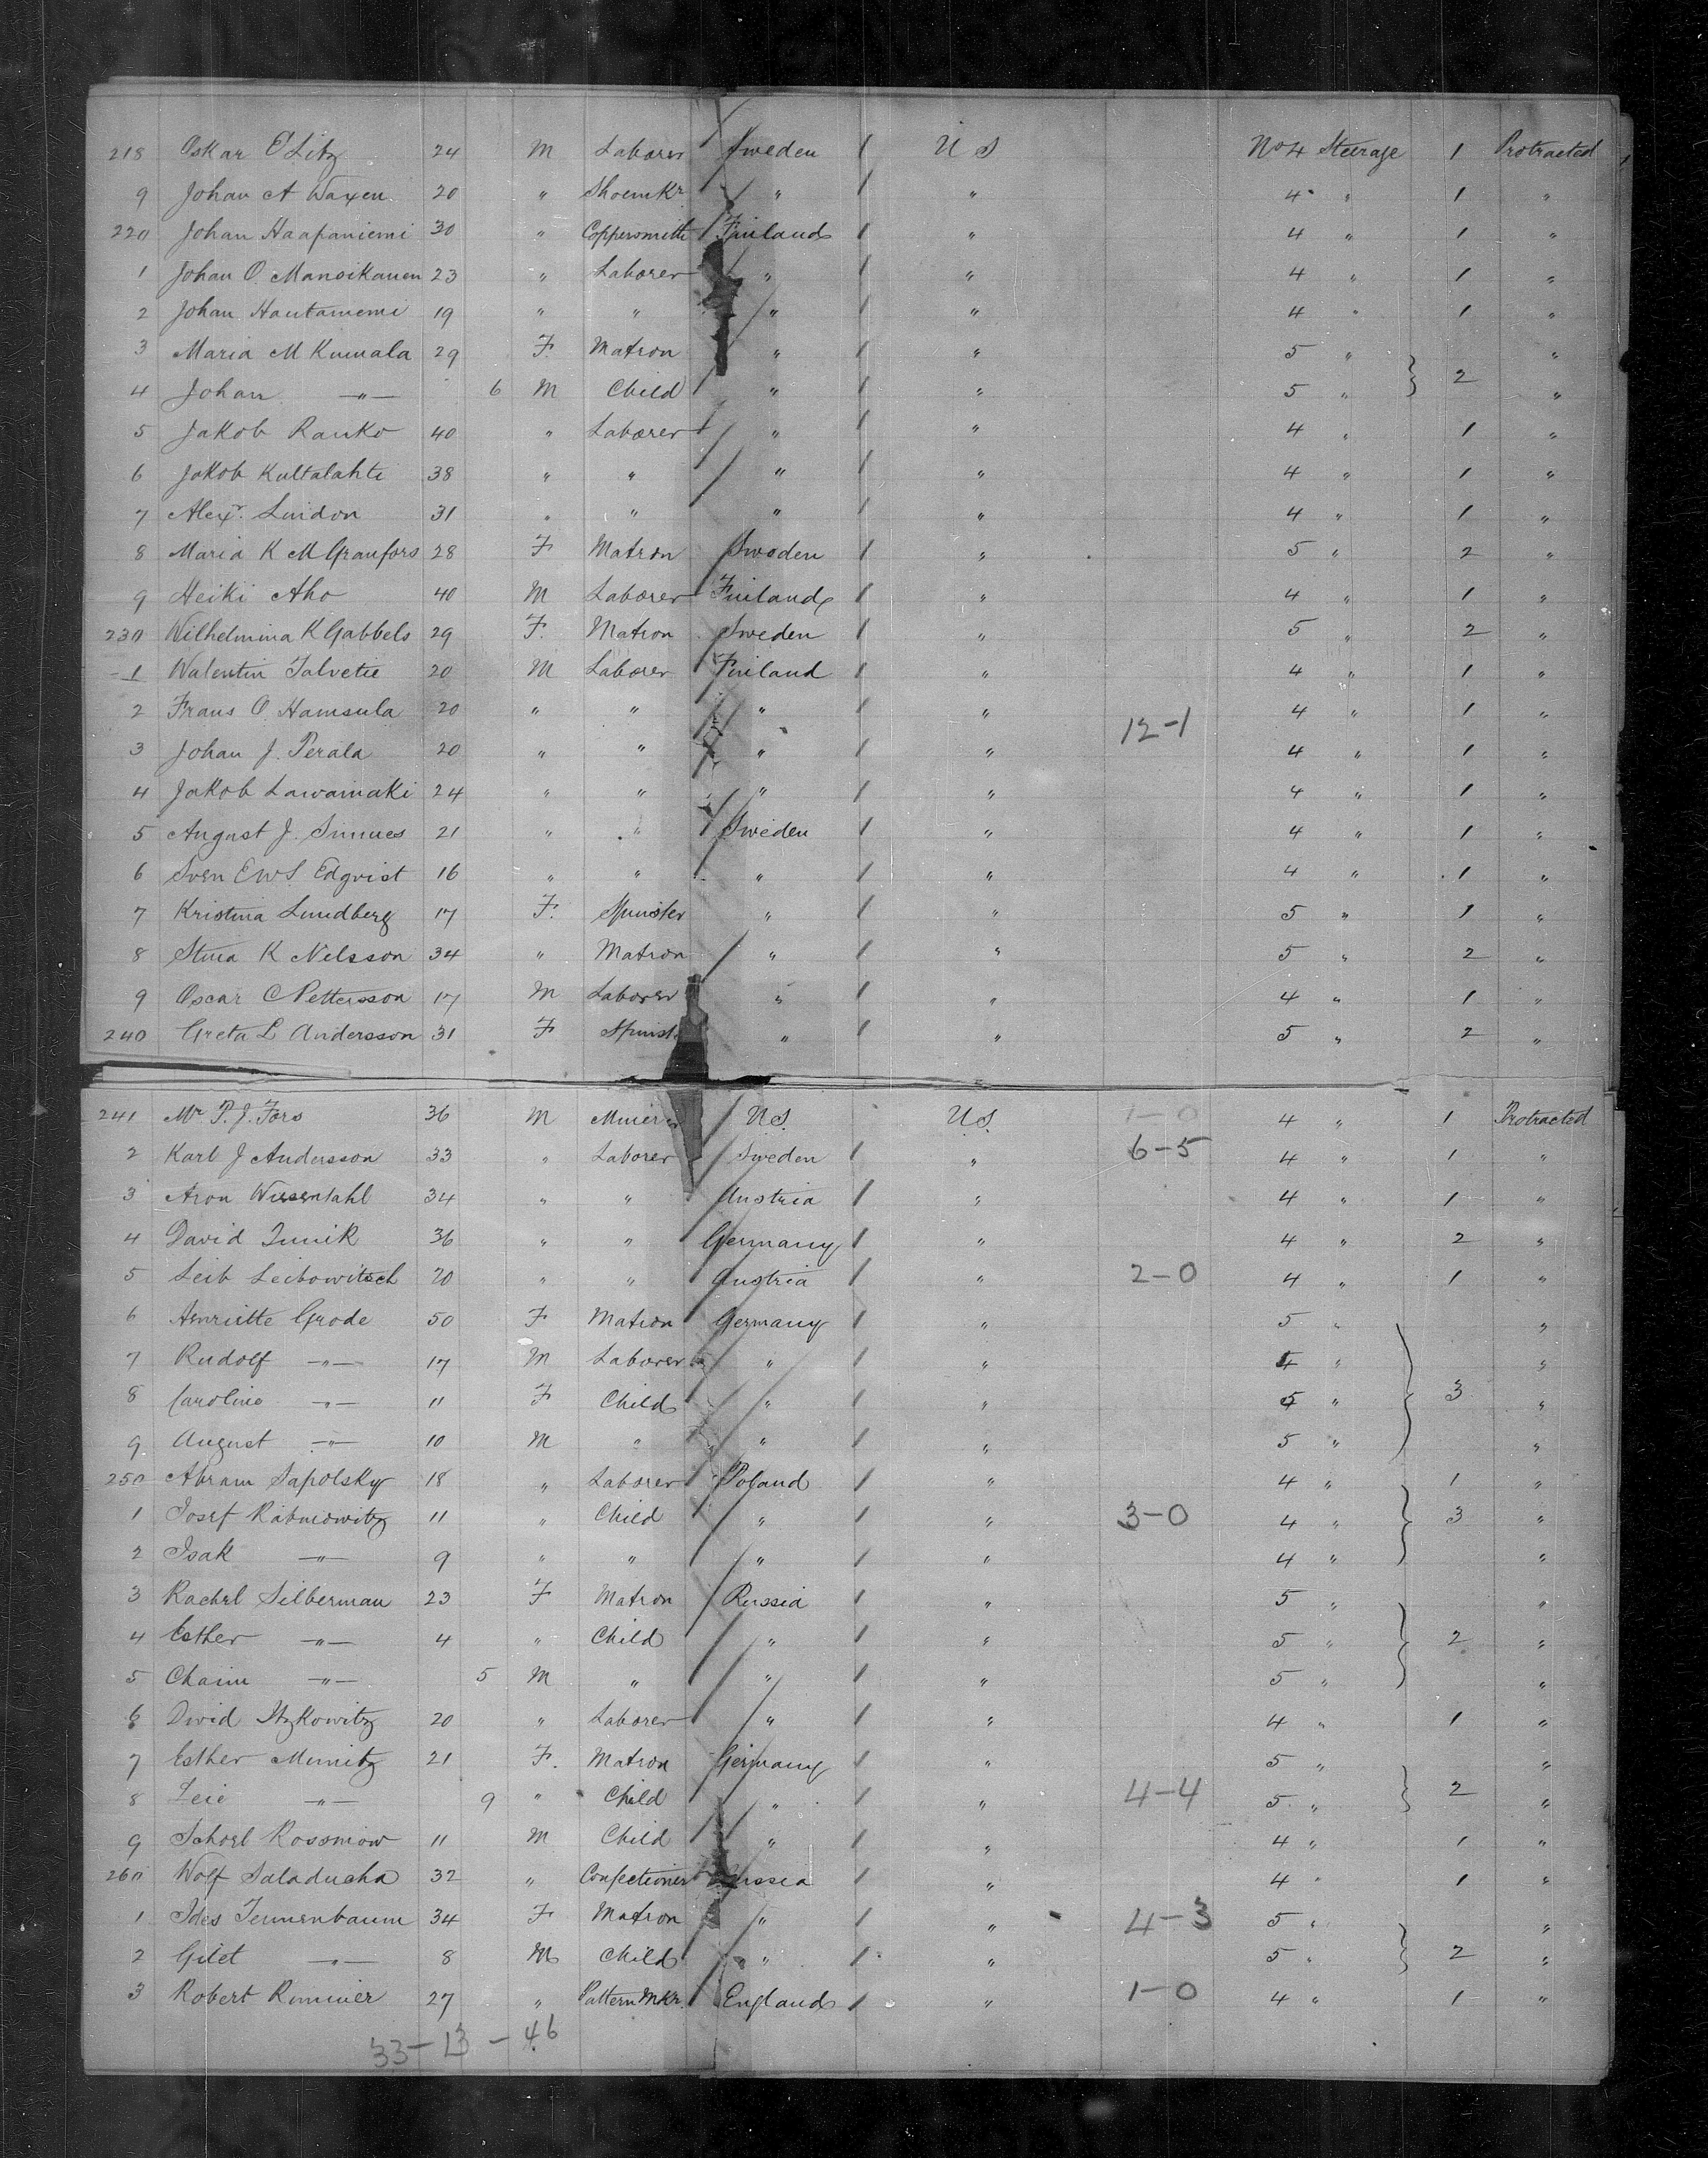 218 Oskar E Litz 24 M Laborer Sweden U S No 4 Steerage 1 Protracted
9 Johan A Waxen 20 " Shoemkr " " 4 " 1 "
220 Johan Haapaniemi 30 " Coppersmith Finland " 4 " 1 "
1 Johan O. Mansikanen 23 " Laborer " " 4 " 1 "
2 Johan Hautaniemi 19 " " " " 4 " 1 "
3 Maria M Kumala 29 F. Matron " " 5 " "
4 Johan —"— 6 M Child " " 5 " 2 "
5 Jakob Ranko 40 " Laborer " " 4 " 1 "
6 Jakob Kultalahti 38 " " " " 4 " 1 "
7 Alexr. Lindon 31 " " " " 4 " 1 "
8 Maria K M Granfors 28 F Matron Sweden " 5 " 2 "
9 Heiki Aho 40 M Laborer Finland " 4 " 1 "
230 Wilhelmina K Gabbels 29 F. Matron Sweden " 5 " 2 "
1 Walentin Talvetie 20 M Laborer Finland " 4 " 1 "
2 Frans O. Hamsula 20 " " " " 4 " 1 "
12-1
3 Johan J. Perala 20 " " " " 4 " 1 "
4 Jakob Lawamaki 24 " " " " 4 " 1 "
5 August J. Simues 21 " " Sweden " 4 " 1 "
6 Sven E W S Edqvist 16 " " " " 4 " 1 "
7 Kristina Lundberg 17 F. Spinster " " 5 " 1 "
8 Stina K Nilsson 34 " Matron " " 5 " 2 "
9 Oscar C Pettersson 17 M Laborer " " 4 " 1 "
240 Greta L Andersson 31 F Spinst. " " 5 " 2 "
241 Mr P. J. Fors 36 M Miner U.S. U.S. 1-0 4 " 1 Protracted
2 Karl J Andersson 33 " Laborer Sweden " 6-5 4 " 1 "
3 Aron Wiesentahl 34 " " Austria " 4 " 1 "
4 David Tunik 36 " " Germany " 4 " 2 "
5 Leib Leibowitsch 20 " " Austria " 2-0 4 " 1 "
6 Henriette Grode 50 F Matron Germany " 5 " "
7 Rudolf —"— 17 M Laborer " " 4 " "
8 Caroline —"— 11 F Child " " 5 " 3 "
9 August —"— 10 M " " " 5 " "
250 Abram Sapolsky 18 " Laborer Poland " 4 " 1 "
1 Josef Rabinowitz 11 " Child " " 3-0 4 " 3 "
2 Isak —"— 9 " " " " 4 " "
3 Rachel Silberman 23 F Matron Russia " 5 " "
4 Esther —"— 4 " Child " " 5 " 2 "
5 Chaim —"— 5 M " " " 5 " "
6 David Itzkowitz 20 " Laborer " " 4 " 1 "
7 Esther Munitz 21 F. Matron Germany " 5 " "
8 Leie —"— 9 " Child " " 4-4 5 " 2 "
9 Schorl Rossniow 11 M Child " " 4 " 1 "
260 Wolf Saladucha 32 " Confectioner Russia " 4 " 1 "
1 Ides Tennenbaum 34 F Matron " " 4-3 5 " "
2 Gilet —"— 8 M Child " " 5 " 2 "
3 Robert Rimmer 27 " Pattern Mkr. England " 1-0 4 " 1 "
33-13-46